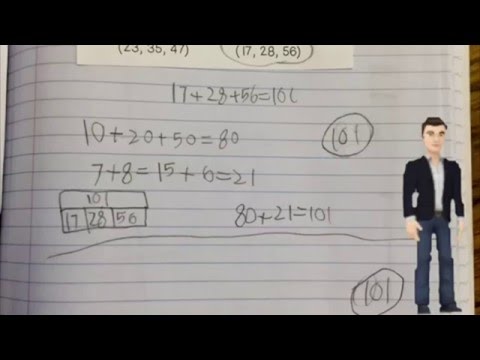 (23, 35, 47) (17, 28, 56)
17+28+56=101
10+20+50=80 101
7+8=15+6=21
101
17 28 56 80+21=101
101